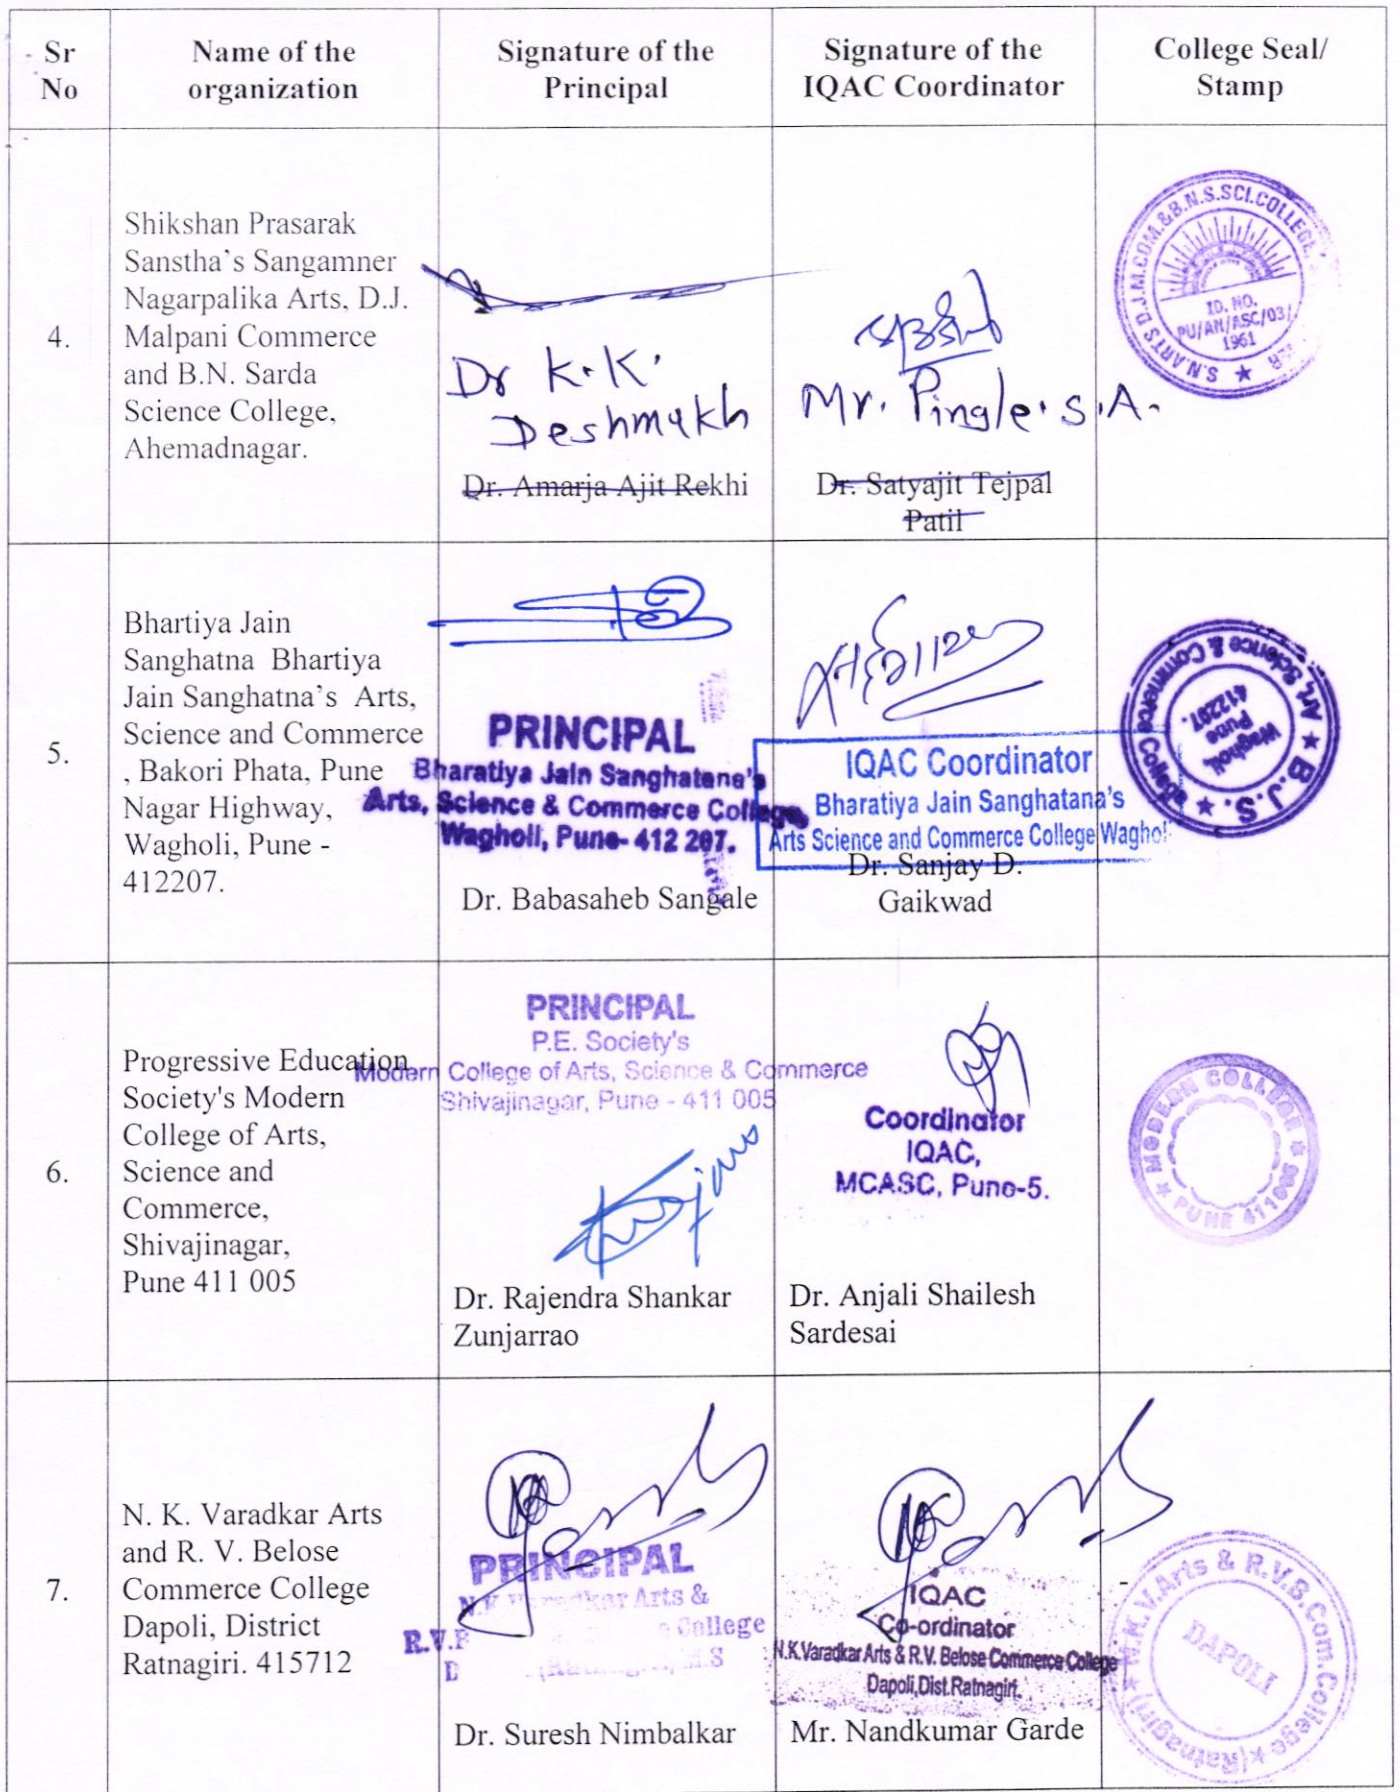 Sr
No
Name of the
organization
Signature of the
Principal
Signature of the
IQAC Coordinator
College Seal/
Stamp
4.
Shikshan Prasarak
Sanstha's Sangamner
Nagarpalika Arts, D.J.
Malpani Commerce
and B.N. Sarda
Science College,
Ahemadnagar.
Dr K.K.
Deshmukh
Dr. Amarja Ajit Rekhi
Mr. Pingle.S.A.
Dr. Satyajit Tejpal
Patil
S.N.ARTS D.J.M.COM.&B.N.S.SCI.COLLEGE
ID. NO.
PU/AN/ASC/03/
1961
5.
Bhartiya Jain
Sanghatna Bhartiya
Jain Sanghatna's Arts,
Science and Commerce
, Bakori Phata, Pune
Nagar Highway,
Wagholi, Pune -
412207.
PRINCIPAL
Bharatiya Jain Sanghatana's
Arts, Science & Commerce College,
Wagholi, Pune- 412 207.
Dr. Babasaheb Sangale
IQAC Coordinator
Bharatiya Jain Sanghatana's
Arts Science and Commerce College Wagholi
Dr. Sanjay D.
Gaikwad
★ B.J.S. ★
Art, Science & Commerce College
Wagholi,
Pune
412207.
6.
Progressive Education
Society's Modern
College of Arts,
Science and
Commerce,
Shivajinagar,
Pune 411 005
PRINCIPAL
P.E. Society's
Modern College of Arts, Science & Commerce
Shivajinagar, Pune - 411 005
Dr. Rajendra Shankar
Zunjarrao
Coordinator
IQAC,
MCASC, Pune-5.
Dr. Anjali Shailesh
Sardesai
★ MODERN COLLEGE ★
PUNE 411005
7.
N. K. Varadkar Arts
and R. V. Belose
Commerce College
Dapoli, District
Ratnagiri. 415712
PRINCIPAL
N.K. Varadkar Arts &
College
Dr. Suresh Nimbalkar
IQAC
Co-ordinator
N.K.Varadkar Arts & R.V. Belose Commerce College
Dapoli,Dist.Ratnagiri.
Mr. Nandkumar Garde
★ N.K.V.Arts & R.V.B.Com.College ★ (Ratnagiri)
DAPOLI